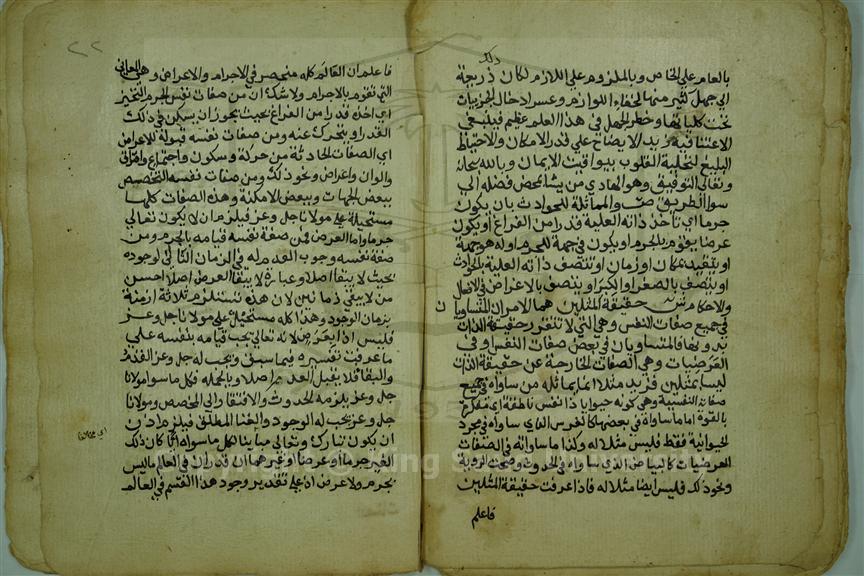 ذلك
بالعام على الخاص وبالملزوم على اللازم لكان ذريعة
الى جهل كثير منها لخفاء اللوازم وعسر ادخال الجزئيات
تحت كلياتها وخطر الجهل في هذا العلم عظيم فينبغي
الاعتنا فيه بمزيد الايضاح على قدر الامكان والاحتياط
البليغ لتحلية القلوب بيواقيت الايمان وبالله سبحانه
وتعالى التوفيق وهو الهادي من يشا بمحض فضله الى
سوا الطريق ص والمماثلة للحوادث بان يكون
جرما اي تاخذ ذاته العلية قدرا من الفراغ او يكون
عرضا يقوم بالجرم او يكون في جهة للجرم او له هو جهة
او يتقيد بمكان او زمان او تتصف ذاته العلية بالحوادث
او يتصف بالصغر او الكبر او يتصف بالاعراض في الافعال
والاحكام ش حقيقة المثلين هما الامران المتساويان
في جميع صفات النفس وهي التي لا تتقرر حقيقة الذات
بدونها فالمتساويان في بعض صفات النفس او في
العرضيات وهي الصفات الخارجة عن حقيقة الذات
ليسا بمثلين فزيد مثلا انما يماثله من ساواه في جميع
صفاته النفسية وهي كونه حيوانا ذا نفس ناطقة اي مفكرة
بالقوة اما ما ساواه في بعضها كالفرس الذي ساواه في مجرد
الحيوانية فقط فليس مثلا له وكذا ما ساواه في الصفات
العرضيات كالبياض الذي ساواه في الحدوث وصحة الرؤية
ونحو ذلك فليس ايضا مثلا له فاذا عرفت حقيقة المثلين
فاعلم
٢٢
فاعلم ان العالم كله منحصر في الاجرام والاعراض وهي المعاني
التي تقوم بالاجرام ولا شك ان من صفات نفس الجرم التحيز
اي اخذه قدرا من الفراغ بحيث يجوز ان يسكن في ذلك
القدر او يتحرك عنه ومن صفات نفسه قبوله للاعراض
اي الصفات الحادثة من حركة وسكون واجتماع وافتراق
والوان واعراض ونحو ذلك ومن صفات نفسه التخصيص
ببعض الجهات وببعض الامكنة وهذه الصفات كلها
مستحيلة على مولانا جل وعز فيلزم ان لا يكون تعالى
جرما واما العرض فمن صفة نفسه قيامه بالجرم ومن
صفة نفسه وجوب العدم له في الزمان الثاني لوجوده
بحيث لا يبقا اصلا وعبارة لا يبقا العرض اصلا احسن
من لا يبقى زمانين لان هذه تستلزم ثلاثة ازمنة
بزمان الوجود وهذا كله مستحيل على مولانا جل وعز
فليس اذا بعرض لانه تعالى يجب قيامه بنفسه على
ما عرفت تفسيره فيما سبق ويجب له جل وعز القدم
والبقا فلا يقبل العدم اصلا وبالجملة فكل ما سوا مولانا
جل وعز يلزمه الحدوث والافتقار الى المخصص ومولانا
جل وعز يجب له الوجود والغنا المطلق فيلزم اذن
ان يكون تبارك وتعالى مباينا لكل ما سواه ايا كان ذلك
الغير جرما او عرضا او غيرهما ان قدر ان في العالم ما ليس
بجرم ولا عرض اذ على تقدير وجود هذا القسم في العالم
اي مخالفا